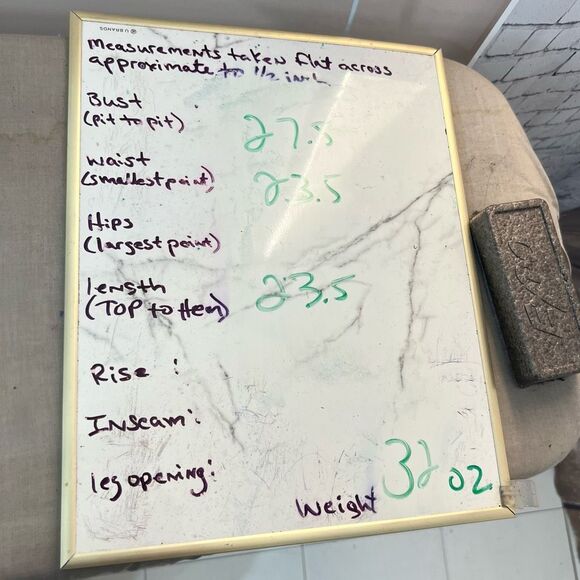 U BRANDS
measurements taken flat across
approximate to 1/2 inch
Bust
(pit to pit) 27.5
waist
(smallest point) 23.5
Hips
(largest point)
length
(TOP to Hem) 23.5
Rise :
Inseam:
leg opening:
Weight 32 oz